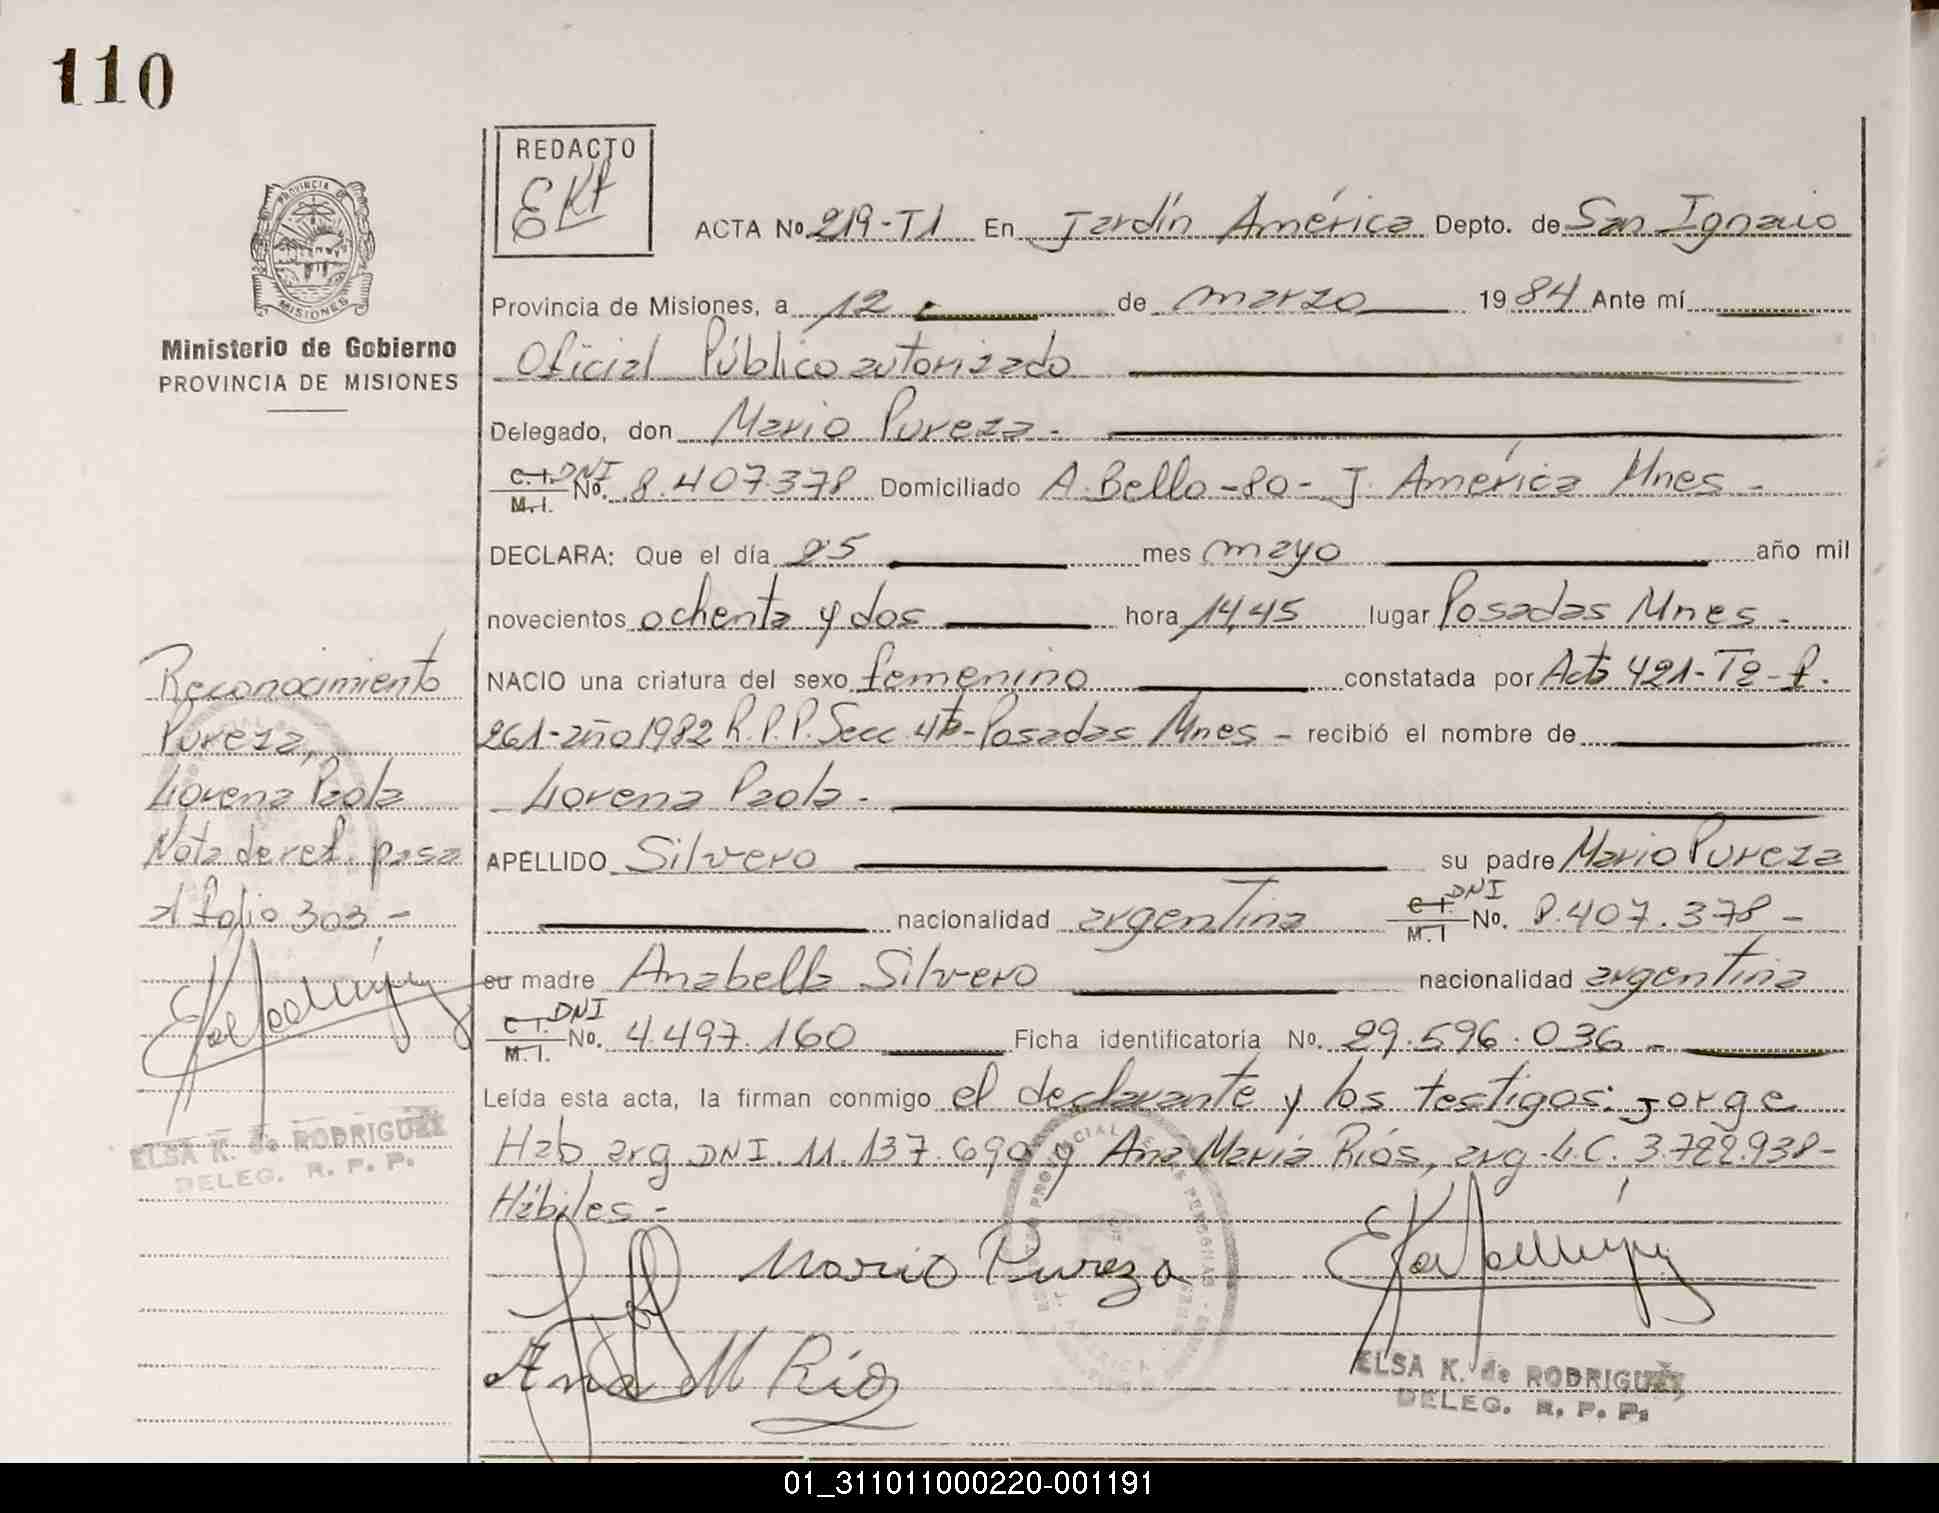 110
REDACTO
EKR
ACTA No 219-T1 En Jardín América Depto. de San Ignacio
Provincia de Misiones, a 12 de marzo 1984 Ante mí
PROVINCIA DE MISIONES
Ministerio de Gobierno
PROVINCIA DE MISIONES
Oficial Público autorizado
Delegado, don Mario Pureza.
C.I. DNI M.I. No. 8.407.378 Domiciliado A. Bello-80- J. América Mnes-
DECLARA: Que el día 25 mes mayo año mil
novecientos ochenta y dos hora 14,45 lugar Posadas Mnes.-
NACIO una criatura del sexo femenino constatada por Acta 421-T2-f.
261-año 1982 R.P.P. Secc 4ta-Posadas Mnes- recibió el nombre de
Lorena Paola.
APELLIDO Silvero su padre Mario Pureza
nacionalidad argentina C.I. DNI M.I No. 8.407.378-
su madre Anabella Silvero nacionalidad argentina
C.I. DNI M.I. No. 4.497.160 Ficha identificatoria No. 29.596.036-
Leída esta acta, la firman conmigo el declarante y los testigos: Jorge
Hab, arg DNI. 11.137.690 y Ana María Ríos, arg. L.C. 3.722.938-
Hábiles-
Mario Pureza
Ana M Ríos
ELSA K. de RODRIGUEZ
DELEG. R. P. P.
Reconocimiento
Pureza,
Lorena Paola
Nota de ref. pasa
al folio 303-
ELSA K. de RODRIGUEZ
DELEG. R. P. P.
01_311011000220-001191